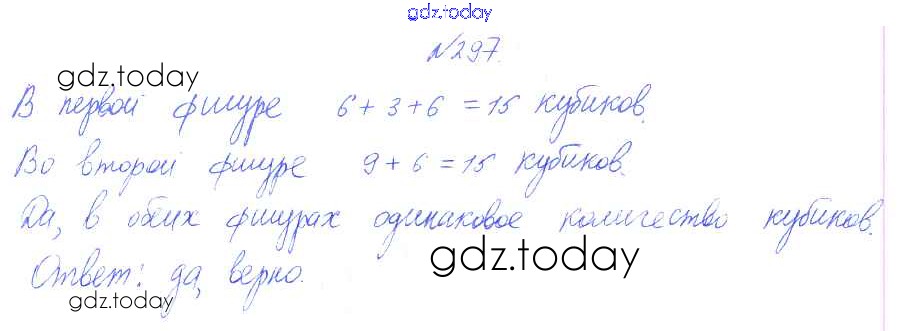 gdz.today
№297.
gdz.today
В первой фигуре 6+3+6=15 кубиков.
Во второй фигуре 9+6=15 кубиков.
Да, в обеих фигурах одинаковое количество кубиков.
gdz.today
Ответ: да, верно.
gdz.today